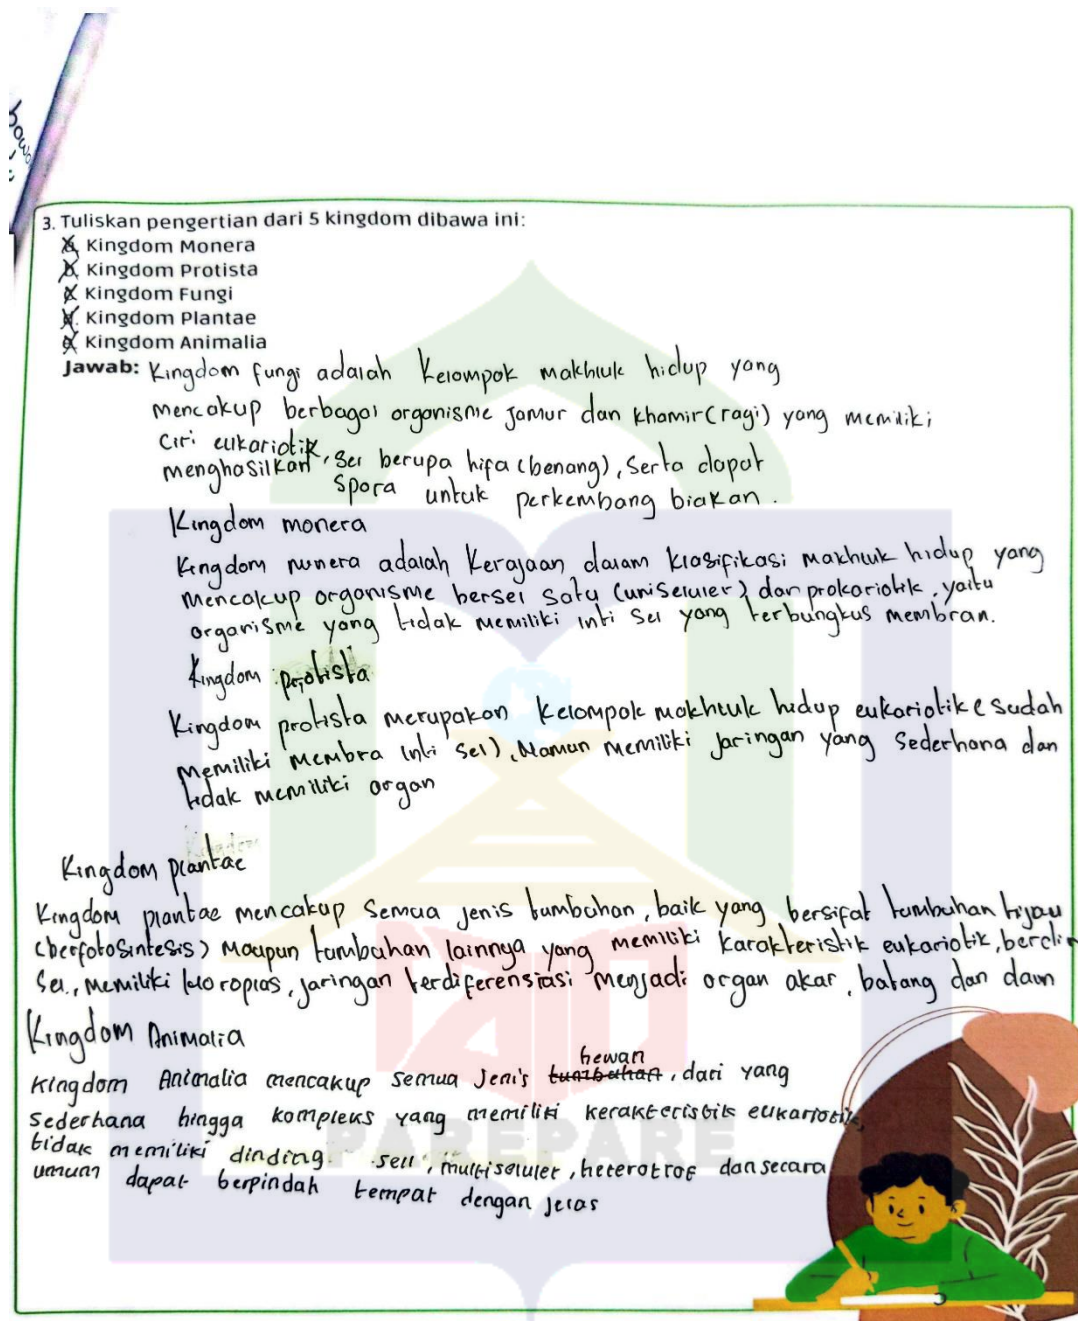 bawa
3. Tuliskan pengertian dari 5 kingdom dibawa ini:
a. Kingdom Monera
b. Kingdom Protista
c. Kingdom Fungi
d. Kingdom Plantae
e. Kingdom Animalia
Jawab: Kingdom fungi adalah Kelompok makhluk hidup yang
mencakup berbagai organisme jamur dan khamir (ragi) yang memiliki
ciri eukariotik, sel berupa hifa (benang), Serta dapat
menghasilkan spora untuk perkembang biakan.
Kingdom monera
Kingdom munera adalah Kerajaan dalam klasifikasi makhluk hidup yang
mencakup organisme bersel satu (uniseluler) dan prokariotik, yaitu
organisme yang tidak memiliki inti sel yang terbungkus membran.
Kingdom protista
Kingdom protista merupakan kelompok makhluk hidup eukariotik (sudah
memiliki membra inti sel), Namun memiliki jaringan yang sederhana dan
tidak memiliki organ
Kingdom plantae
Kingdom plantae mencakup semua jenis tumbuhan, baik yang bersifat tumbuhan hijau
(berfotosintesis) maupun tumbuhan lainnya yang memiliki karakteristik eukariotik, berdin
Sel, memiliki kloroplas, jaringan terdiferensiasi menjadi organ akar, batang dan daun
Kingdom Animalia
Kingdom Animalia mencakup semua jenis tumbuhan hewan, dari yang
sederhana hingga kompleks yang memiliki kerakteristik eukariotik,
tidak memiliki dinding sell, multiseluler, heterotrof dan secara
umum dapat berpindah tempat dengan jelas
PAREPARE